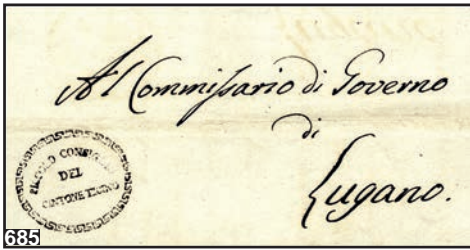 Al Commissario di Governo
di
Lugano.
PICCOLO CONSIGLIO
DEL
CANTONE TICINO
685